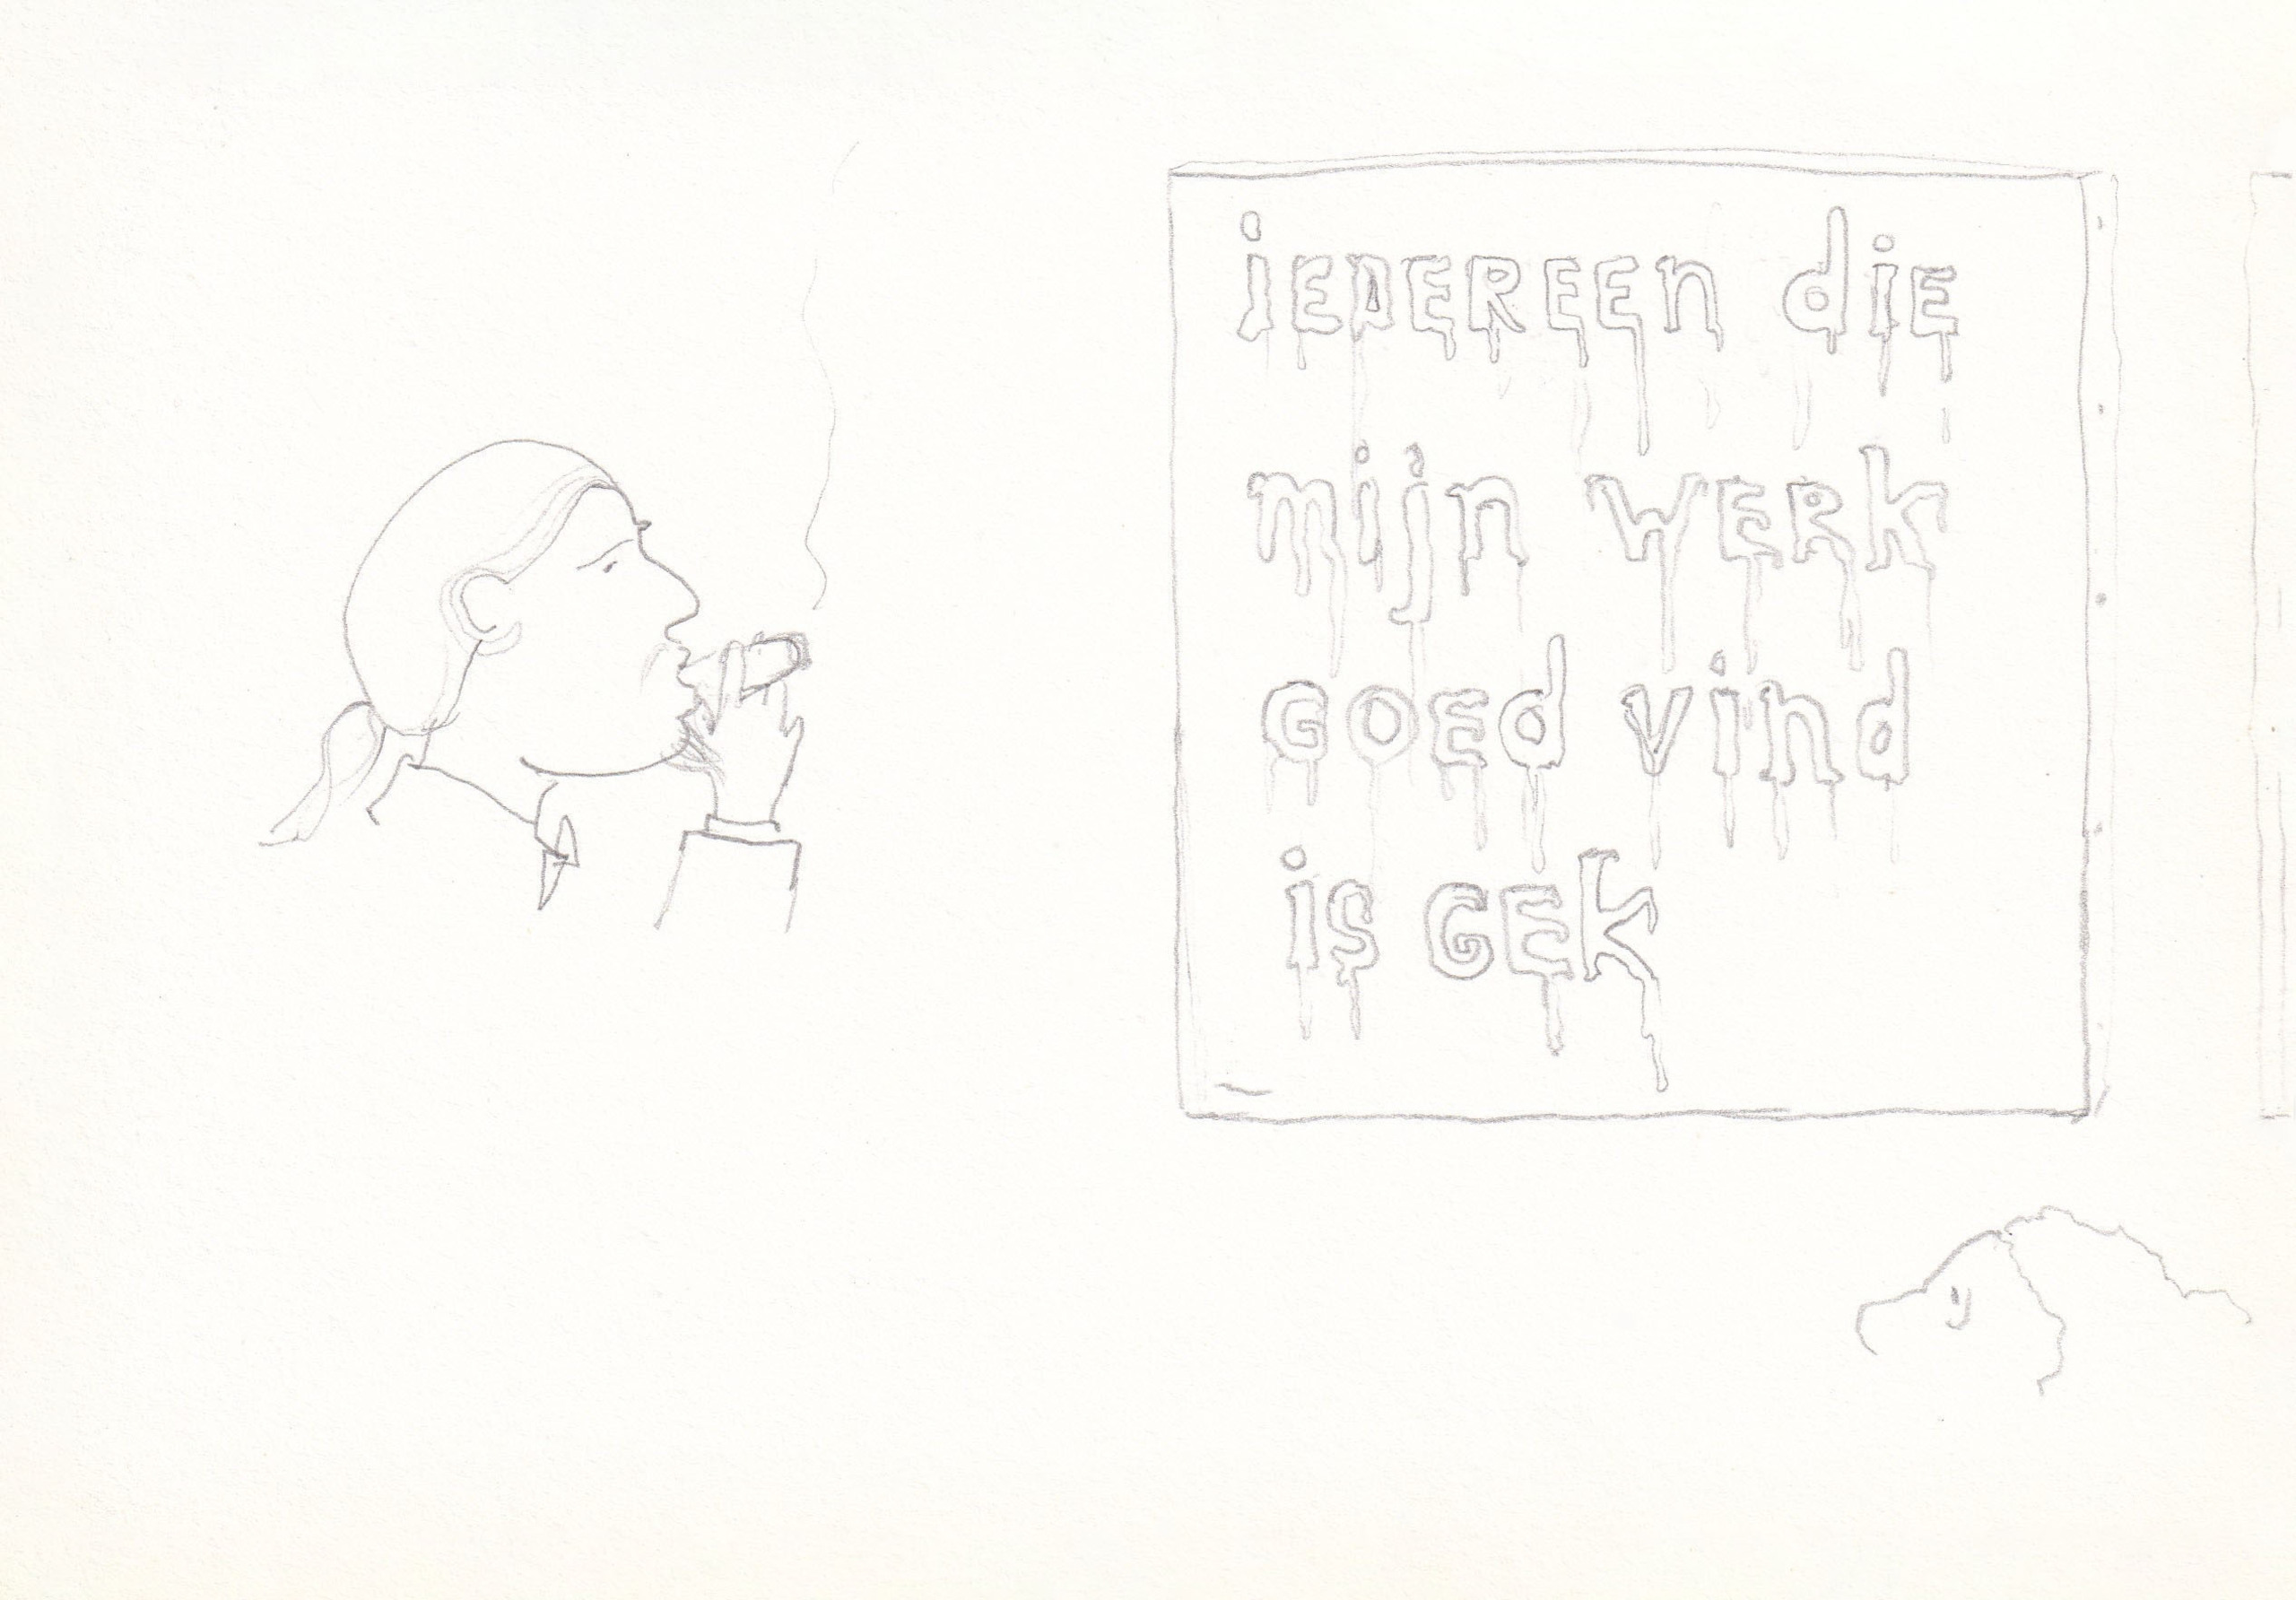 iEDEREEn diE
mijn WERk
GOEd vind
is GEk